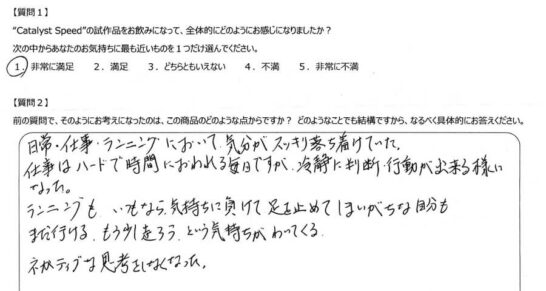 【質問1】
“Catalyst Speed”の試作品をお飲みになって、全体的にどのようにお感じになりましたか？
次の中からあなたのお気持ちに最も近いものを1つだけ選んでください。
1．非常に満足　2．満足　3．どちらともいえない　4．不満　5．非常に不満
【質問2】
前の質問で、そのようにお考えになったのは、この商品のどのような点からですか？ どのようなことでも結構ですから、なるべく具体的にお答えください。
日常・仕事・ランニングにおいて、気分がスッキリ落ち着けていた。
仕事はハードで時間におわれる毎日ですが、冷静に判断・行動が出来る様に
なった。
ランニングも いつもなら、気持ちに負けて足を止めてしまいがちな自分も
まだ行ける、もう少し走ろう、という気持ちがわいてくる。
ネガティブな思考をしなくなった。